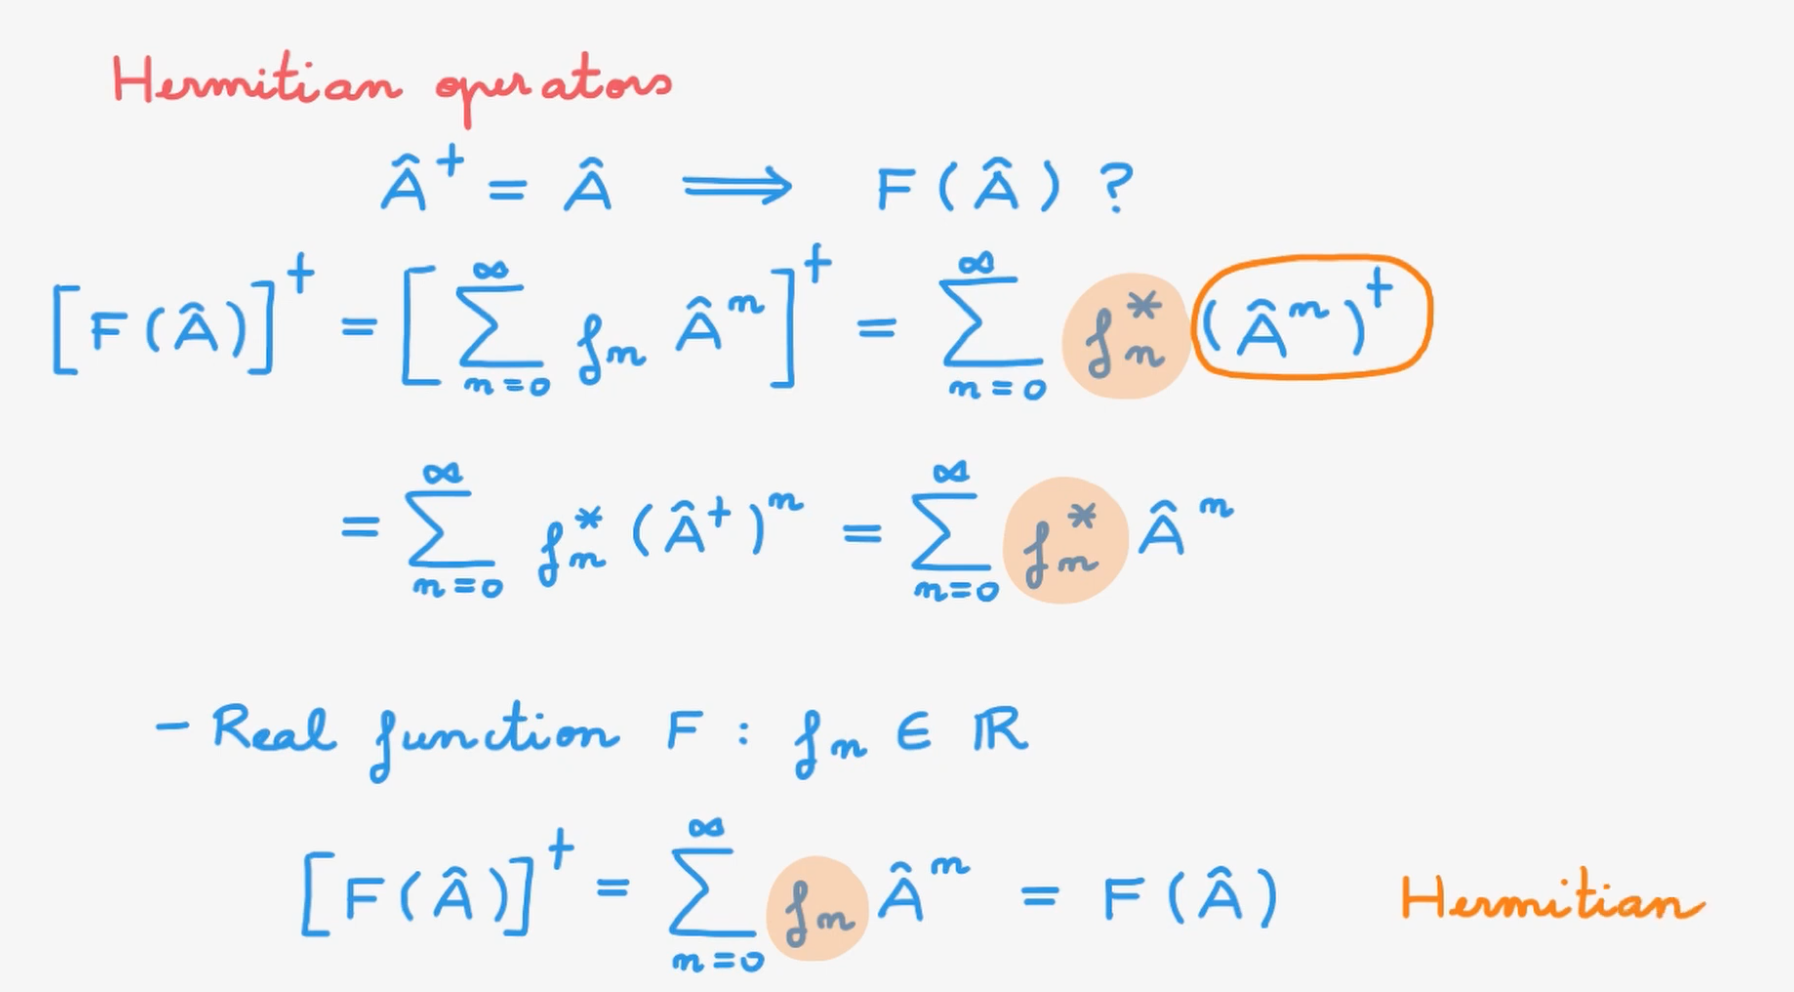 Hermitian operators
Â† = Â ⟹ F(Â) ?
[F(Â)]† = [∑_{n=0}^{∞} f_n Â^n]† = ∑_{n=0}^{∞} f_n^* (Â^n)†
= ∑_{n=0}^{∞} f_n^* (Â†)^n = ∑_{n=0}^{∞} f_n^* Â^n
- Real function F : f_n ∈ ℝ
[F(Â)]† = ∑_{n=0}^{∞} f_n Â^n = F(Â) Hermitian